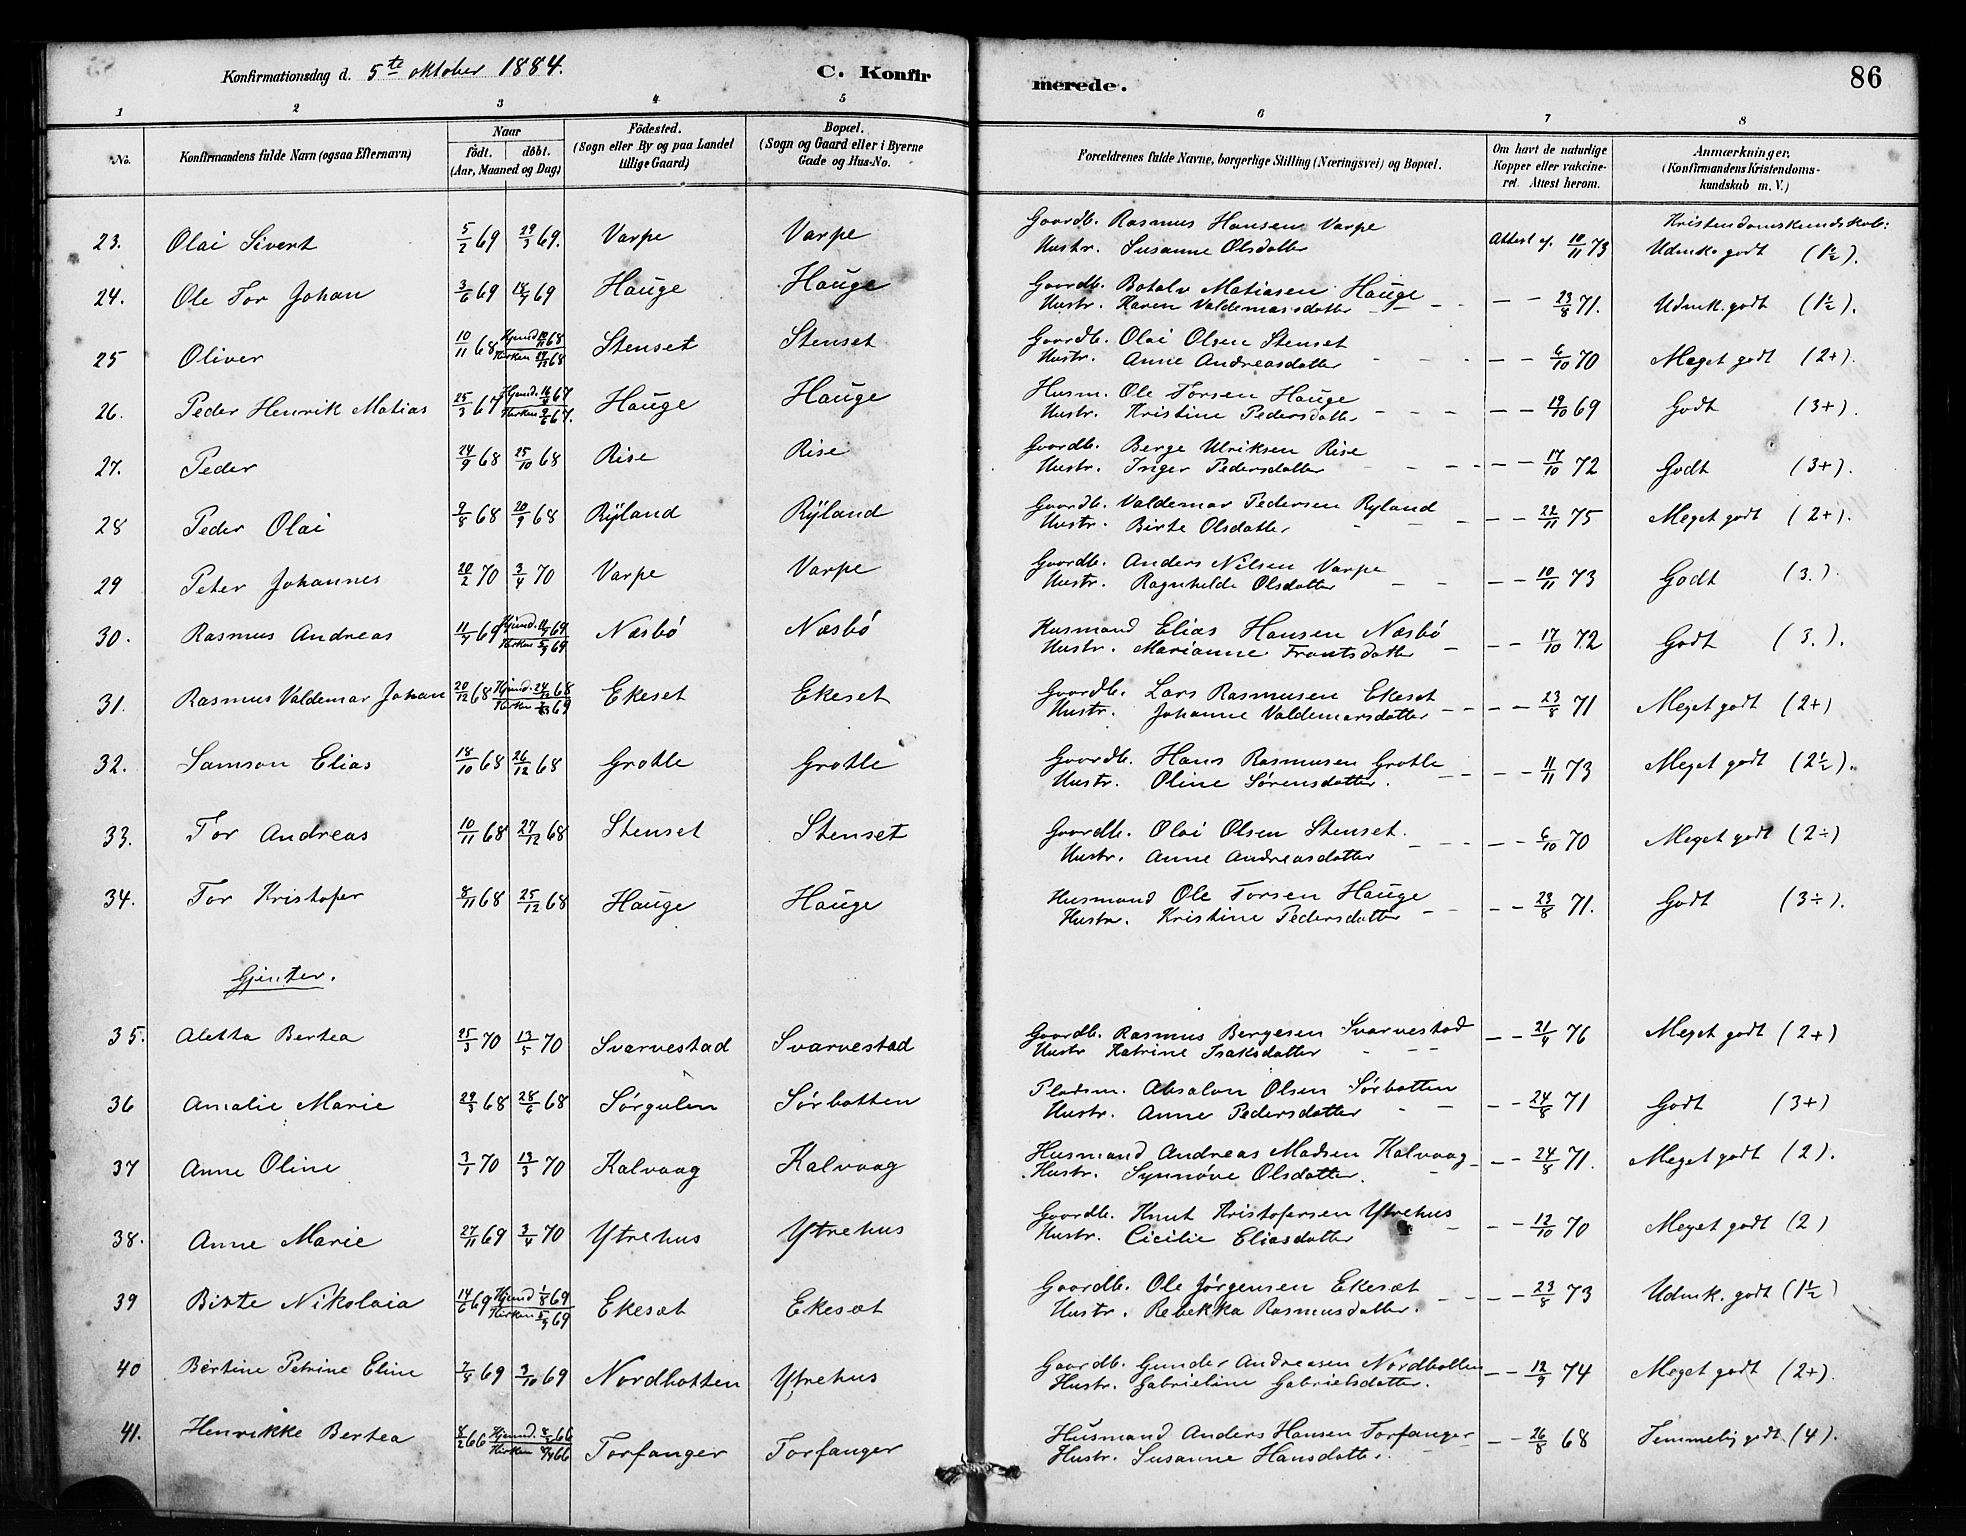 Konfirmationsdag d. 5te oktober 1884.
C. Konfir
merede.
86
1 2 3 4 5 6 7 8
No.
Konfirmandens fulde Navn (ogsaa Efternavn)
Naar
födt. döbt.
(Aar, Maaned og Dag)
Födested.
(Sogn eller By og paa Landet
tillige Gaard)
Bopæl.
(Sogn og Gaard eller i Byerne
Gade og Hus-No.
Forældrenes fulde Navne, borgerlige Stilling (Næringsvei) og Bopæl.
Om havt de naturlige
Kopper eller vakcine-
ret. Attest herom.
Anmærkninger.
(Konfirmandens Kristendoms-
kundskab m. V.)
Gaardb. Rasmus Hansen Varpe Kristendomskundskab:
23. Olai Sivert 5/2 69 29/3 69. Varpe Varpe Hustr. Susanne Olsdatter Attest af. 10/11 73 Udmk. godt (1½).
Gaardb. Botolv Matiasen Hauge
24. Ole Tor Johan 3/6 69 18/7 69 Hauge Hauge Hustr. Karen Valdemarsdatter - - 23/8 71. Udmk. godt (1½).
Gaardb. Olai Olsen Stenset
25 Oliver 10/11 68 Hjemd. 68 Kirken 68 Stenset Stenset Hustr. Anne Andreasdatter - - 6/10 70 Meget godt (2+).
Husm. Ole Torsen Hauge
26. Peder Henrik Matias 25/3 67 Hjemd. 67 Kirken 67. Hauge Hauge Hustr. Kristine Pedersdatter - - 19/10 69 Godt (3+).
Gaardb. Berge Ulriksen Rise
27. Peder 24/9 68 25/10 68 Rise Rise Hustr. Inger Pedersdatter - - 17/10 72 Godt (3+).
Gaardb. Valdemar Pedersen Ryland
28 Peder Olai 9/8 68 20/9 68 Rÿland Rÿland Hustr. Birte Olsdatter - - 22/11 75 Meget godt (2+).
Gaardb. Anders Nilsen Varpe
29 Peter Johannes 20/2 70 3/4 70 Varpe Varpe Hustr. Ragnhilde Olsdatter - - 10/11 73 Godt (3.).
Husmand Elias Hansen Næsbö
30. Rasmus Andreas 11/7 69 Hjemd. 69 Kirken 69 Næsbö Næsbö Hustr. Marianne Frantsdatter - - 17/10 72 Godt (3.).
Gaardb. Lars Rasmusen Ekeset
31. Rasmus Valdemar Johan 20/12 68 Hjemd. 24/12 68 Kirken 69 Ekeset Ekeset Hustr. Johanne Valdemarsdatter - - 23/8 71 Meget godt (2+)
Gaardb. Hans Rasmusen Grotle
32. Samson Elias 18/10 68 26/12 68 Grotle Grotle Hustr. Oline Sörensdatter. - - 11/11 73 Meget godt (2½).
Gaardb. Olai Olsen Stenset.
33. Tor Andreas 10/11 68 27/12 68 Stenset Stenset Hustr. Anne Andreasdatter - - 6/10 70 Meget godt (2÷)
Husmand Ole Torsen Hauge
34. Tor Kristofer 8/11 68 25/12 68 Hauge Hauge Hustr. Kristine Pedersdatter - - 23/8 71. Godt (3÷).
Gjenter.
Gaardb. Rasmus Bergesen Svarvestad
35. Aletta Bertea 25/3 70 13/5 70 Svarvestad Svarvestad Hustr Katrine Isaksdatter - - 21/4 76 Meget godt (2+)
Pladsm. Absalon Olsen Sörbotten
36 Amalie Marie 29/3 68 28/6 68 Sörgulen Sörbotten Hustr. Anne Pedersdatter - - 24/8 71 Godt (3+)
Husmand Andreas Madsen Kalvaag
37 Anne Oline 3/1 70 13/3 70 Kalvaag Kalvaag Hustr. Synnöve Olsdatter. - - 24/8 71. Meget godt (2).
Gaardb. Knut Kristofersen Ytrehus
38. Anne Marie 27/11 69 3/4 70 Ytrehus Ytrehus Hustr. Cicilie Eliasdatter - - 12/10 70 Meget godt (2)
Gaardb. Ole Jörgensen Ekesæt
39 Birte Nikolaia 14/6 69 Hjemd 1/8 69 Kirken 69 Ekesæt Ekesæt Hustr. Rebekka Rasmusdatter. - - 23/8 73 Udmk. godt (1½)
Gaardb. Gunder Andreasen Nordbotten
40 Bertine Petrine Eline 7/8 69 3/10 69 Nordbotten Ytrehus Hustr. Gabrieline Gabrielsdatter. - - 12/9 74 Meget godt (2+).
Husmand Anders Hansen Torfanger
41. Henrikke Bertea 8/2 66 Hjemd. 66 Kirken 66 Torfanger Torfanger Hustr. Susanne Hansdatter. - - 26/8 68 Temmelig godt (4).